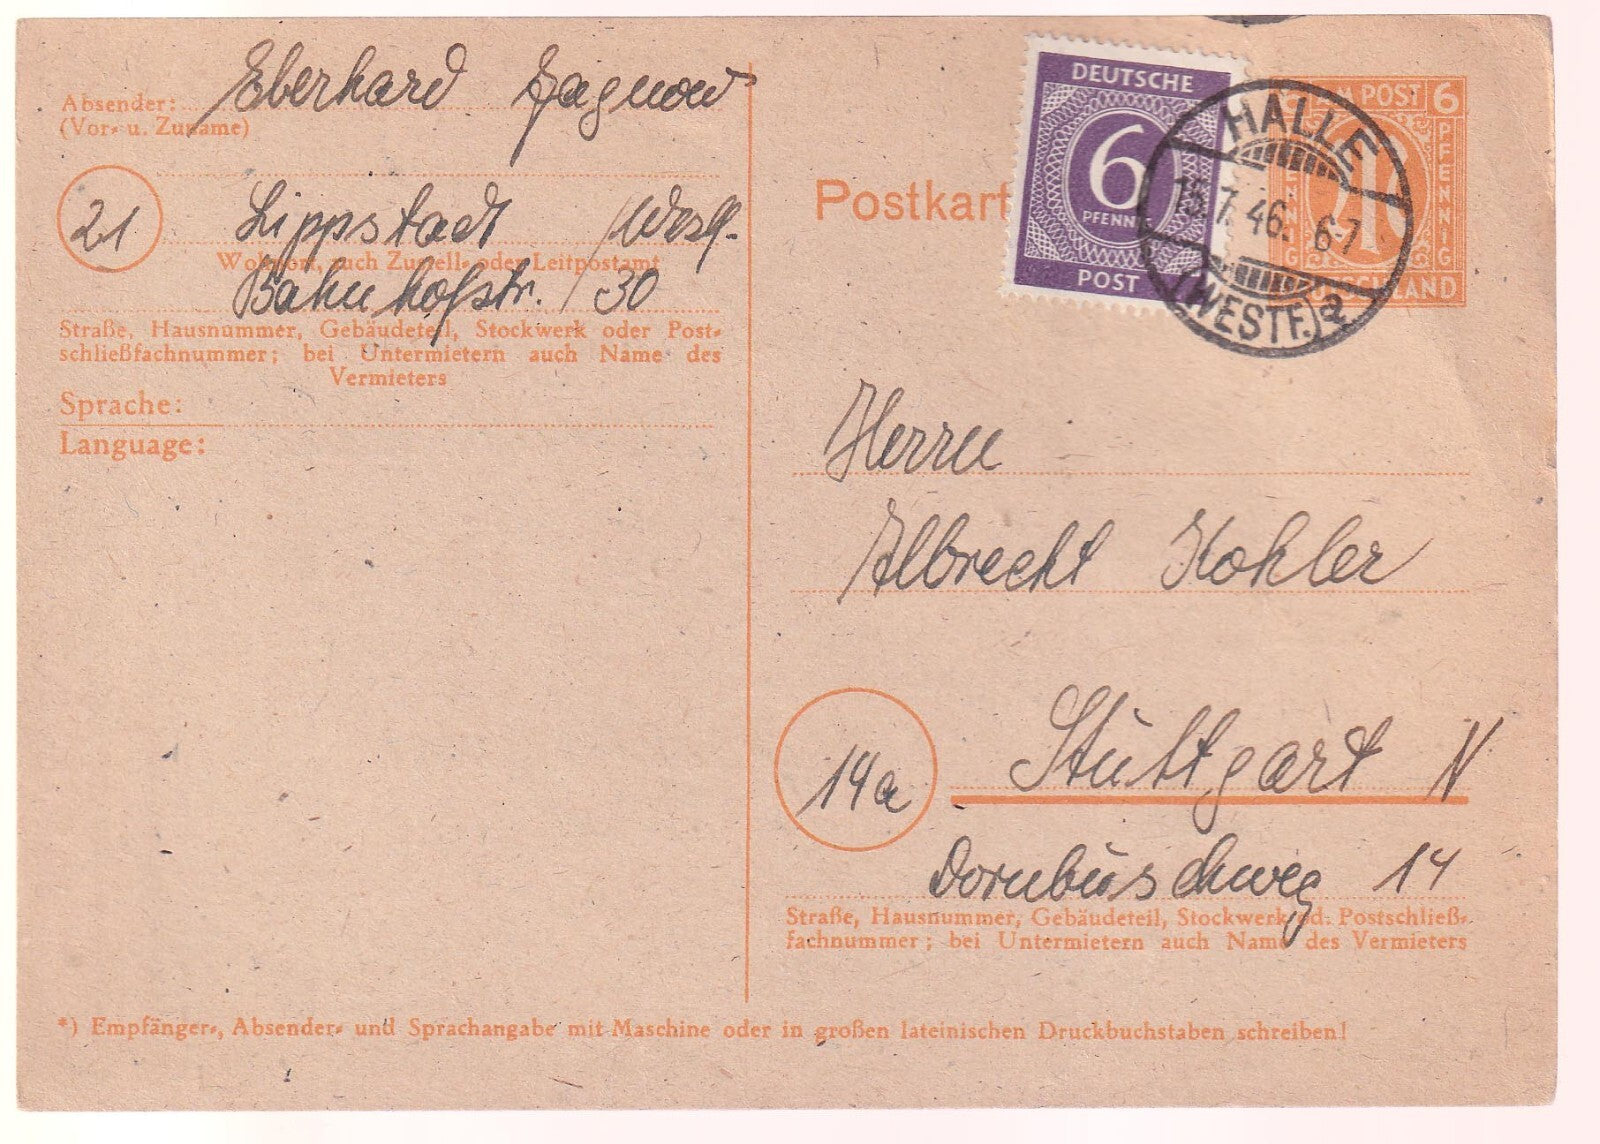 Absender: Eberhard Jagnow
(Vor- u. Zuname)
21 Lippstadt /Westf.
Wohnort, auch Zustell- oder Leitpostamt
Bahnhofstr. 30
Straße, Hausnummer, Gebäudeteil, Stockwerk oder Post-
schließfachnummer; bei Untermietern auch Name des
Vermieters
Sprache:
Language:
Postkart
DEUTSCHE
6
PFENNIG
POST
AM POST 6
PFENNIG
HALLE
15.7.46. 6-7
(WESTF.) a
Herrn
Albrecht Kohler
14a Stuttgart N
Dornbuschweg 14
Straße, Hausnummer, Gebäudeteil, Stockwerk od. Postschließ-
fachnummer; bei Untermietern auch Name des Vermieters
*) Empfänger-, Absender- und Sprachangabe mit Maschine oder in großen lateinischen Druckbuchstaben schreiben!